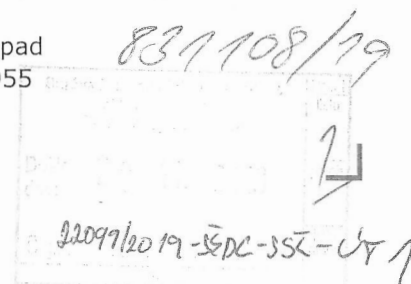 pad
055
831108/19
1
22097/2019-SŽDC-SSZ-ÚT
1